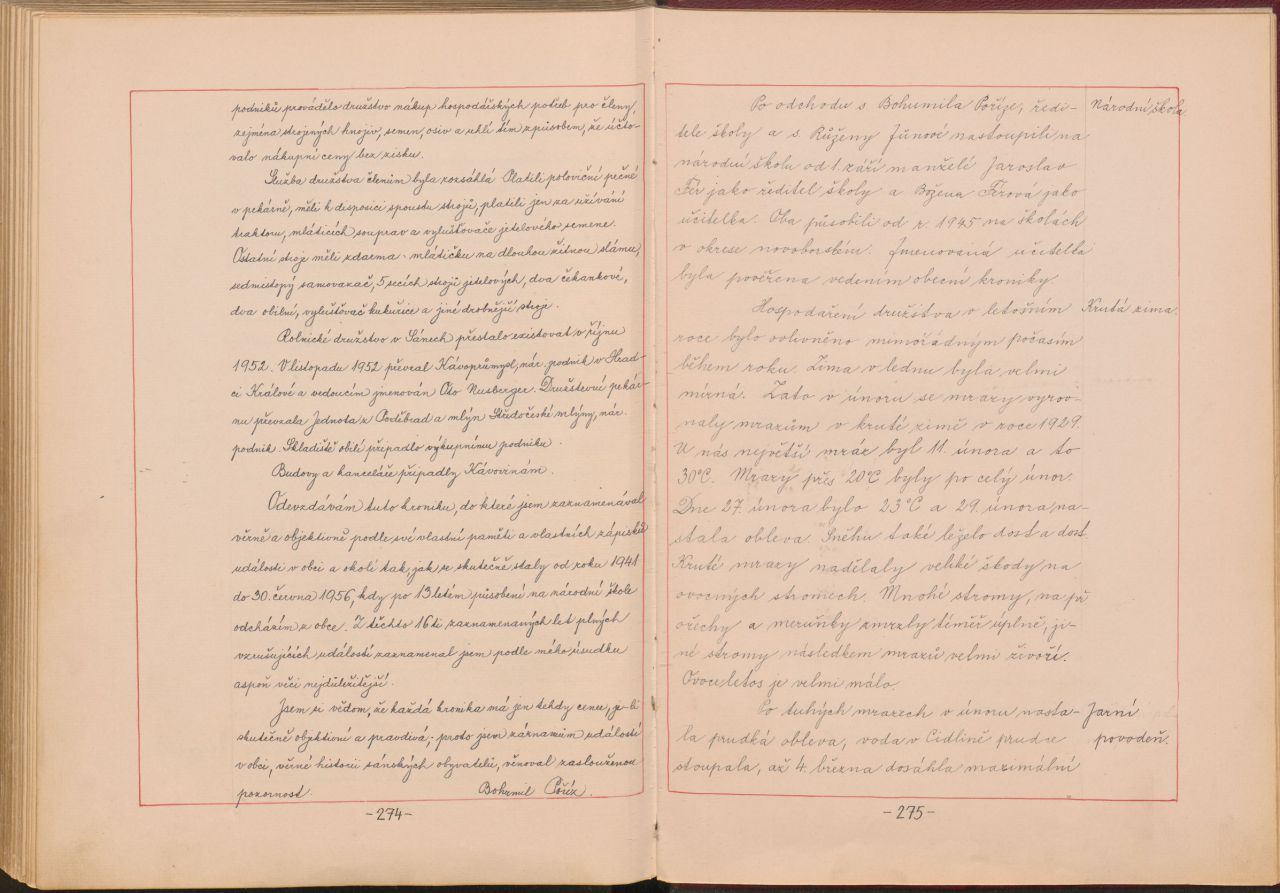 podniků provádělo družstvo nákup hospodářských potřeb pro členy,
zejména strojených hnojiv, semen, osiv a uhlí tím způsobem, že účto-
valo nákupní ceny bez zisku.
Služba družstva členům byla rozsáhlá. Platili poloviční pečné
v pekárně, měli k disposici spoustu strojů, platili jen za užívání
traktoru, mláticích souprav a vylušťovače jetelového semene.
Ostatní stroje měli zdarma - mlátičku na dlouhou žitnou slámu,
sedmistopý samovazač, 5 secích strojů jetelových, dva čekankové,
dva obilní, vylušťovač kukuřice a jiné drobnější stroje.
Rolnické družstvo v Sánech přestalo existovat v říjnu
1952. V listopadu 1952 převzal Kávoprůmysl, nár. podnik v Hrad-
ci Králové a vedoucím jmenován Oto Nusberger. Družstevní pekár-
nu převzala Jednota z Poděbrad a mlýn Středočeské mlýny, nár.
podnik. Skladiště obilí připadlo výkupnímu podniku.
Budovy a kanceláře připadly Kávovinám.
Odevzdávám tuto kroniku, do které jsem zaznamenával
věrně a objektivně podle své vlastní paměti a vlastních zápisků
události v obci a okolí tak, jak se skutečně staly od roku 1941
do 30. června 1956, kdy po 13 letém působení na národní škole
odcházím z obce. Z těchto 16ti zaznamenaných let plných
vzrušujících událostí zaznamenal jsem podle mého úsudku
aspoň věci nejdůležitější.
Jsem si vědom, že každá kronika má jen tehdy cenu, je-li
skutečně objektivní a pravdivá; proto jsem záznamům událostí
v obci, věrné historii sánských obyvatelů, věnoval zaslouženou
pozornost. Bohumil Poříz.
-274-
Po odchodu s. Bohumila Poříze, ředi-
tele školy a s. Růženy Jůnové nastoupili na
národní školu od 1. září manželé Jaroslav
Fér jako ředitel školy a Božena Férová jako
učitelka. Oba působili od r. 1945 na školách
v okrese novoborském. Jmenovaná učitelka
byla pověřena vedením obecní kroniky.
Národní škola.
Hospodaření družstva v letošním
roce bylo ovlivněno mimořádným počasím
během roku. Zima v lednu byla velmi
mírná. Zato v únoru se mrazy vyrov-
naly mrazům v kruté zimě v roce 1929.
U nás největší mráz byl 11. února a to
30°C. Mrazy přes 20°C byly po celý únor.
Dne 27. února bylo 23°C a 29. února na-
stala obleva. Sněhu také leželo dost a dost.
Kruté mrazy nadělaly veliké škody na
ovocných stromech. Mnohé stromy, na př.
ořechy a meruňky zmrzly téměř úplně, ji-
né stromy následkem mrazů velmi živoří.
Ovoce letos je velmi málo.
Krutá zima.
Po tuhých mrazech v únoru nasta-
la prudká obleva, voda v Cidlině prudce
stoupala, až 4. března dosáhla maximální
Jarní
povodeň.
-275-